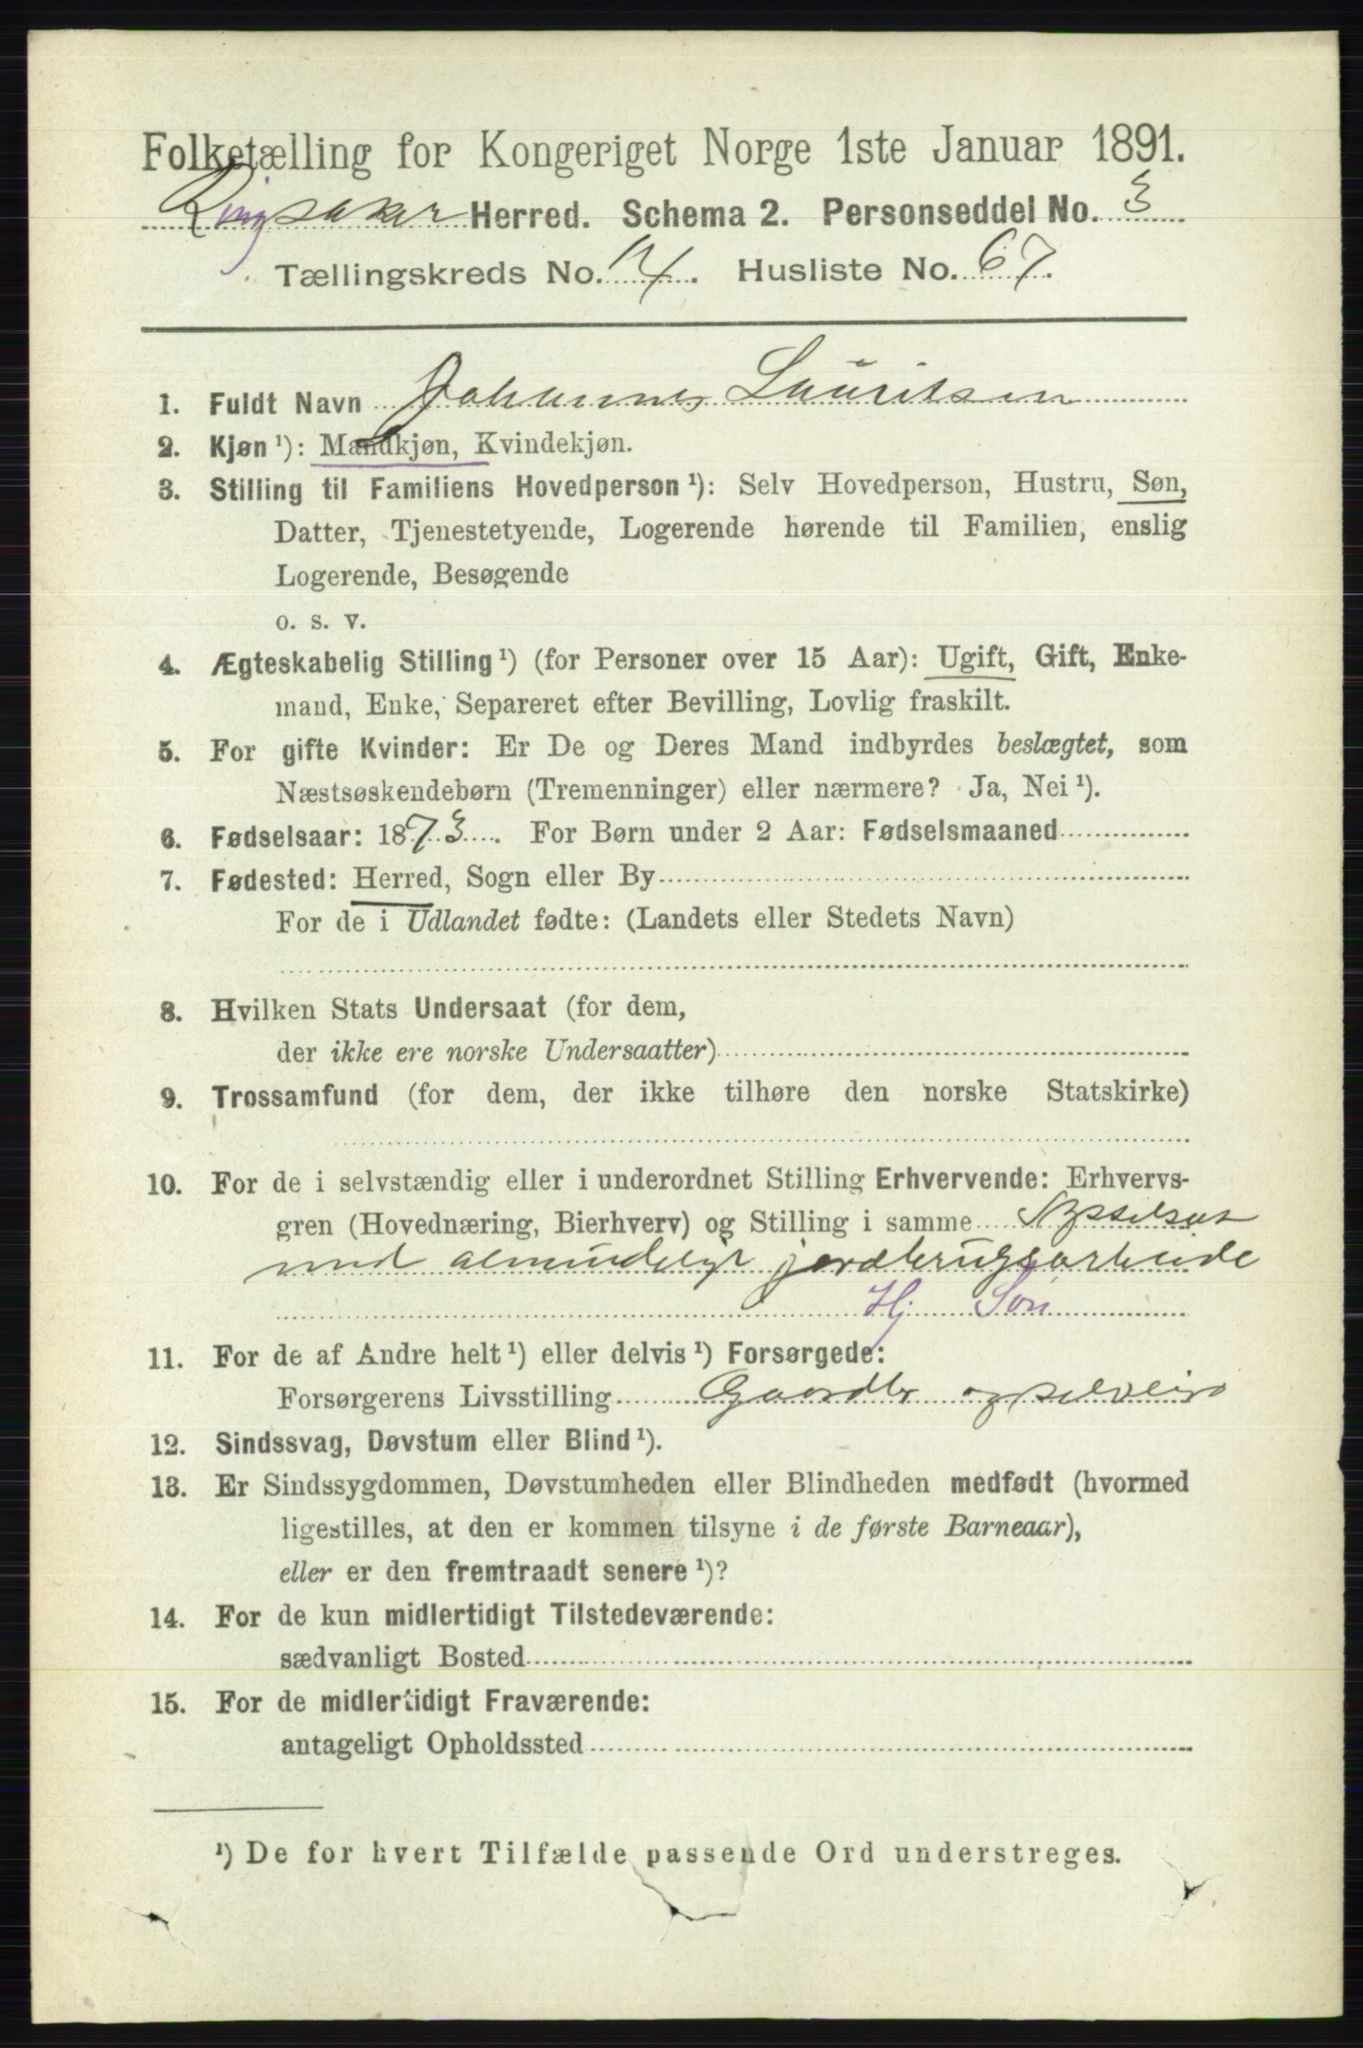 Folketælling for Kongeriget Norge 1ste Januar 1891.
Ringsaker Herred. Schema 2. Personseddel No. 3
Tællingskreds No. 14. Husliste No. 67.
1. Fuldt Navn Johannes Lauritsen
2. Kjøn ¹): Mandkjøn, Kvindekjøn.
3. Stilling til Familiens Hovedperson ¹): Selv Hovedperson, Hustru, Søn,
Datter, Tjenestetyende, Logerende hørende til Familien, enslig
Logerende, Besøgende
o. s. v.
4. Ægteskabelig Stilling ¹) (for Personer over 15 Aar): Ugift, Gift, Enke-
mand, Enke, Separeret efter Bevilling, Lovlig fraskilt.
5. For gifte Kvinder: Er De og Deres Mand indbyrdes beslægtet, som
Næstsøskendebørn (Tremenninger) eller nærmere? Ja, Nei ¹).
6. Fødselsaar: 1873. For Børn under 2 Aar: Fødselsmaaned
7. Fødested: Herred, Sogn eller By
For de i Udlandet fødte: (Landets eller Stedets Navn)
8. Hvilken Stats Undersaat (for dem,
der ikke ere norske Undersaatter)
9. Trossamfund (for dem, der ikke tilhøre den norske Statskirke)
10. For de i selvstændig eller i underordnet Stilling Erhvervende: Erhvervs-
gren (Hovednæring, Bierhverv) og Stilling i samme Sysselsat
med almindeligt jordbrugsarbeide
Hj Søn
11. For de af Andre helt ¹) eller delvis ¹) Forsørgede:
Forsørgerens Livsstilling Gaardbr og selveier
12. Sindssvag, Døvstum eller Blind ¹).
13. Er Sindssygdommen, Døvstumheden eller Blindheden medfødt (hvormed
ligestilles, at den er kommen tilsyne i de første Barneaar),
eller er den fremtraadt senere ¹)?
14. For de kun midlertidigt Tilstedeværende:
sædvanligt Bosted
15. For de midlertidigt Fraværende:
antageligt Opholdssted
¹) De for hvert Tilfælde passende Ord understreges.